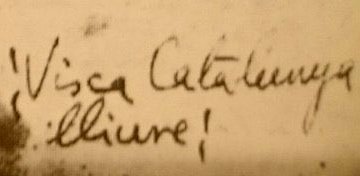 ¡Visca Catalunya
lliure!